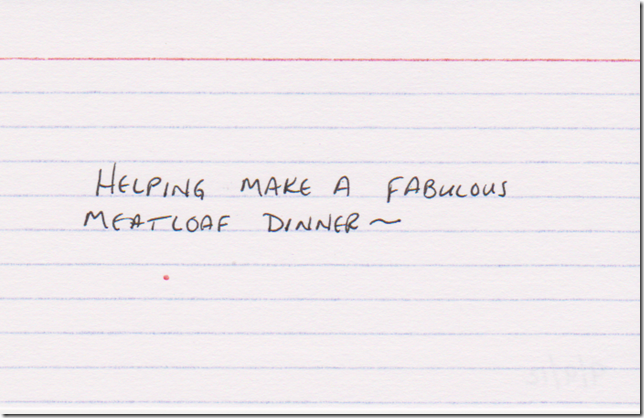 HELPING MAKE A FABULOUS
MEATLOAF DINNER~